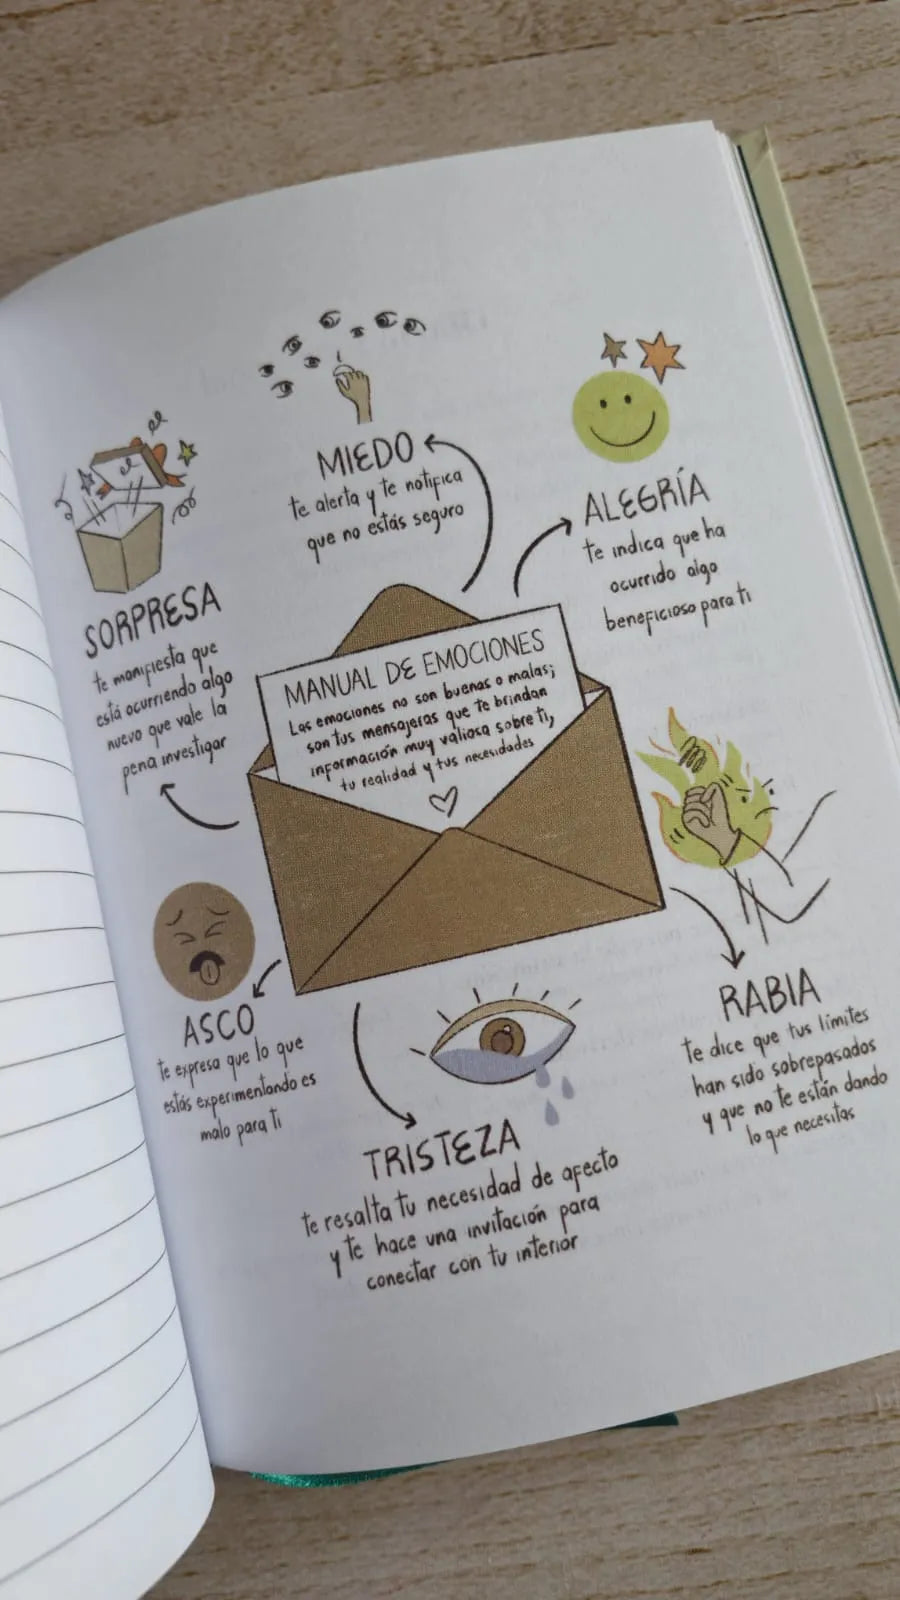 MIEDO
te alerta y te notifica
que no estás seguro
ALEGRÍA
te indica que ha
ocurrido algo
beneficioso para ti
SORPRESA
te manifiesta que
está ocurriendo algo
nuevo que vale la
pena investigar
MANUAL DE EMOCIONES
Las emociones no son buenas o malas;
son tus mensajeras que te brindan
información muy valiosa sobre ti,
tu realidad y tus necesidades
ASCO
te expresa que lo que
estás experimentando es
malo para ti
RABIA
te dice que tus límites
han sido sobrepasados
y que no te están dando
lo que necesitas
TRISTEZA
te resalta tu necesidad de afecto
y te hace una invitación para
conectar con tu interior